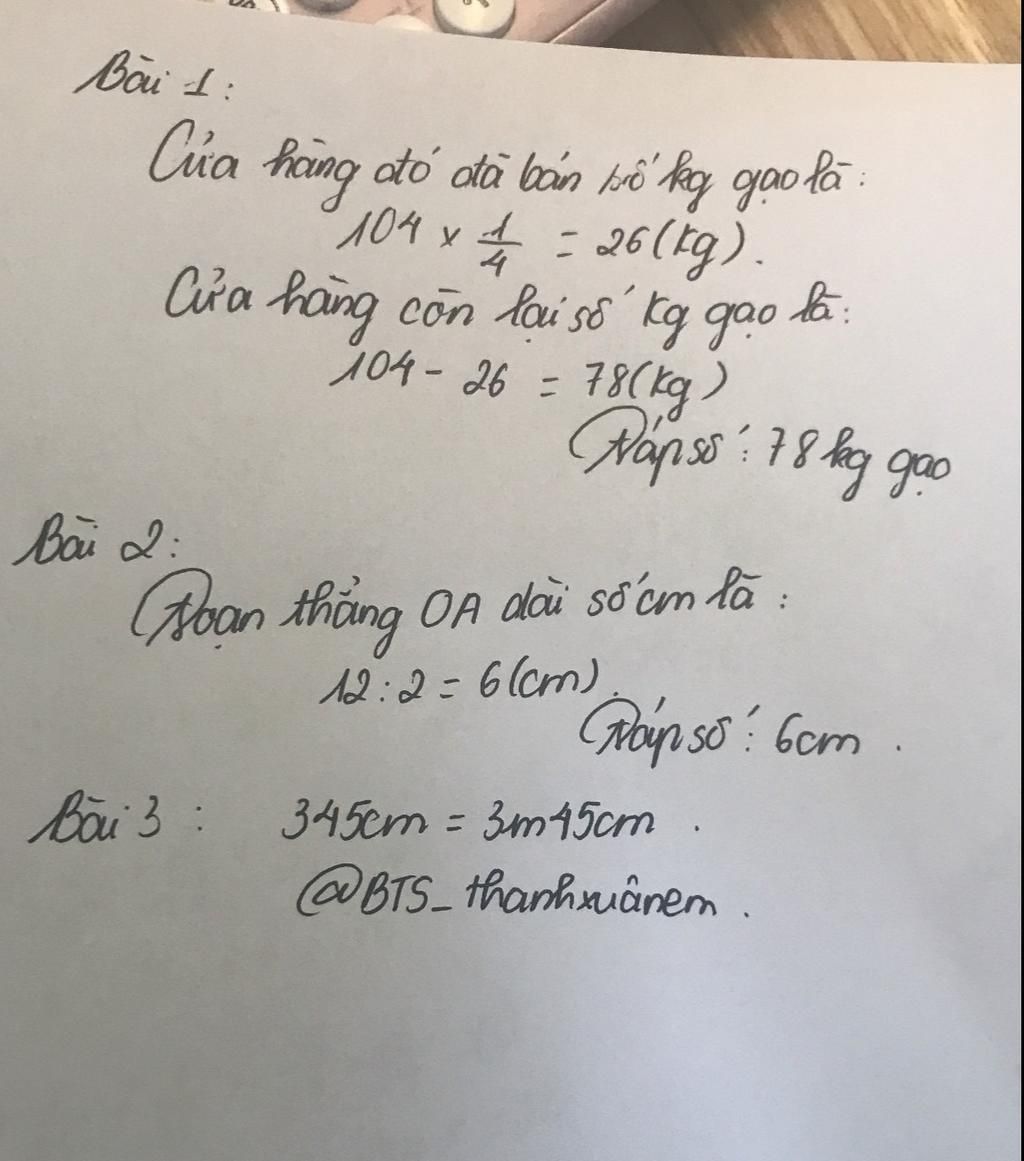 Bài 1:
Cửa hàng đó đã bán số kg gạo là:
104 × 1/4 = 26 (kg).
Cửa hàng còn lại số kg gạo là:
104 - 26 = 78 (kg)
Đáp số: 78 kg gạo
Bài 2:
Đoạn thẳng OA dài số cm là:
12 : 2 = 6 (cm).
Đáp số: 6cm.
Bài 3: 345cm = 3m45cm.
@BTS_thanhxuânem.